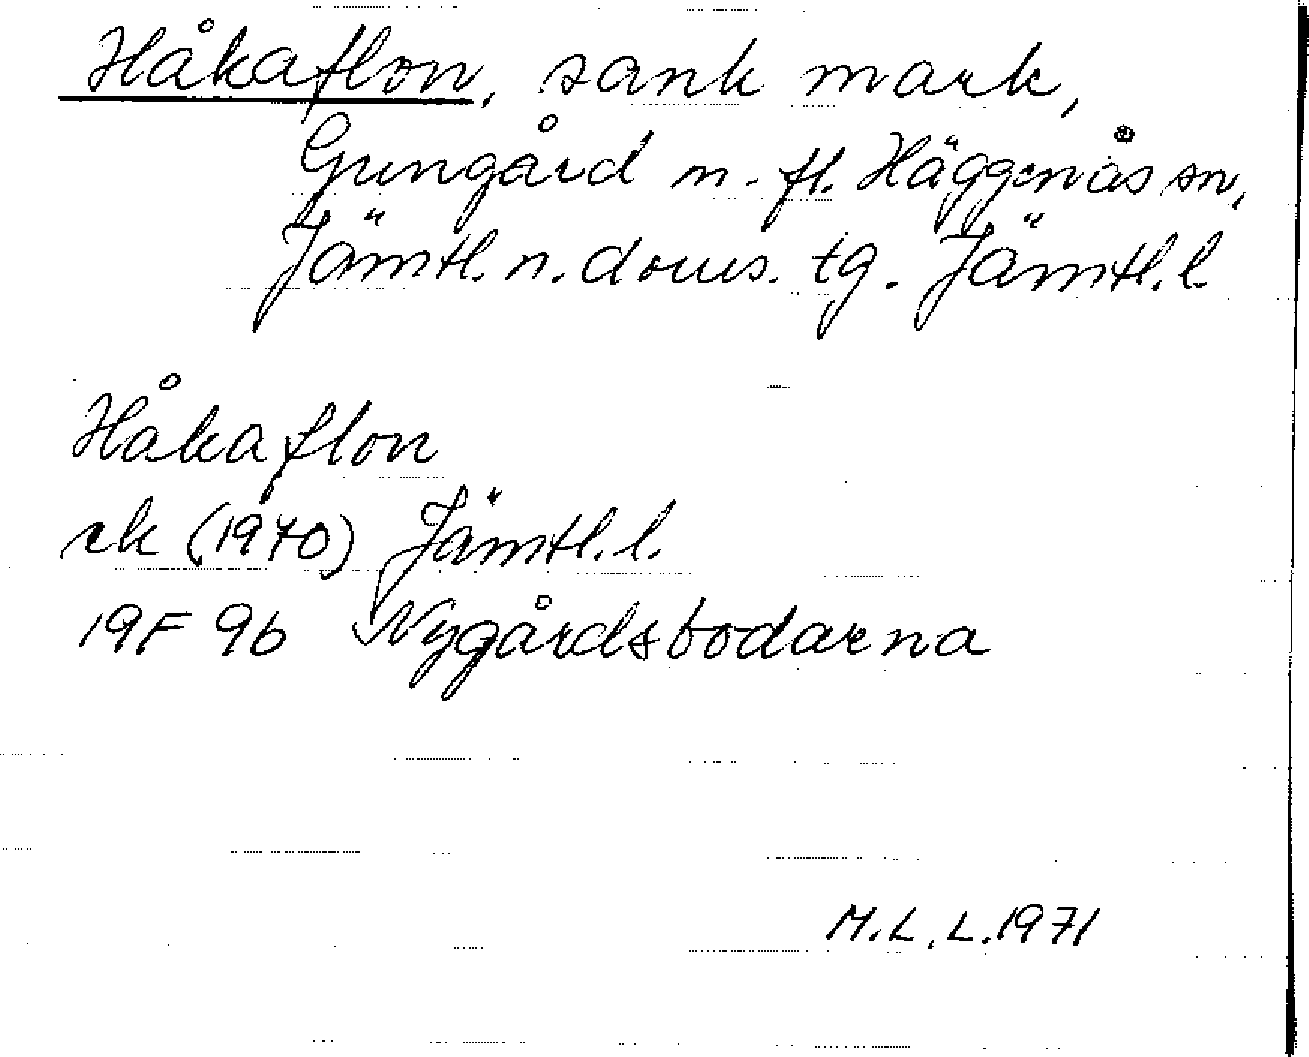 Håkaflon, sank mark,
Gungård m. fl. Häggenås sn,
Jämtl. n. doms. tg. Jämtl. l.
Håkaflon
rk (1970) Jämtl. l.
19F 9b Nygårdsbodarna
M.L.L. 1971